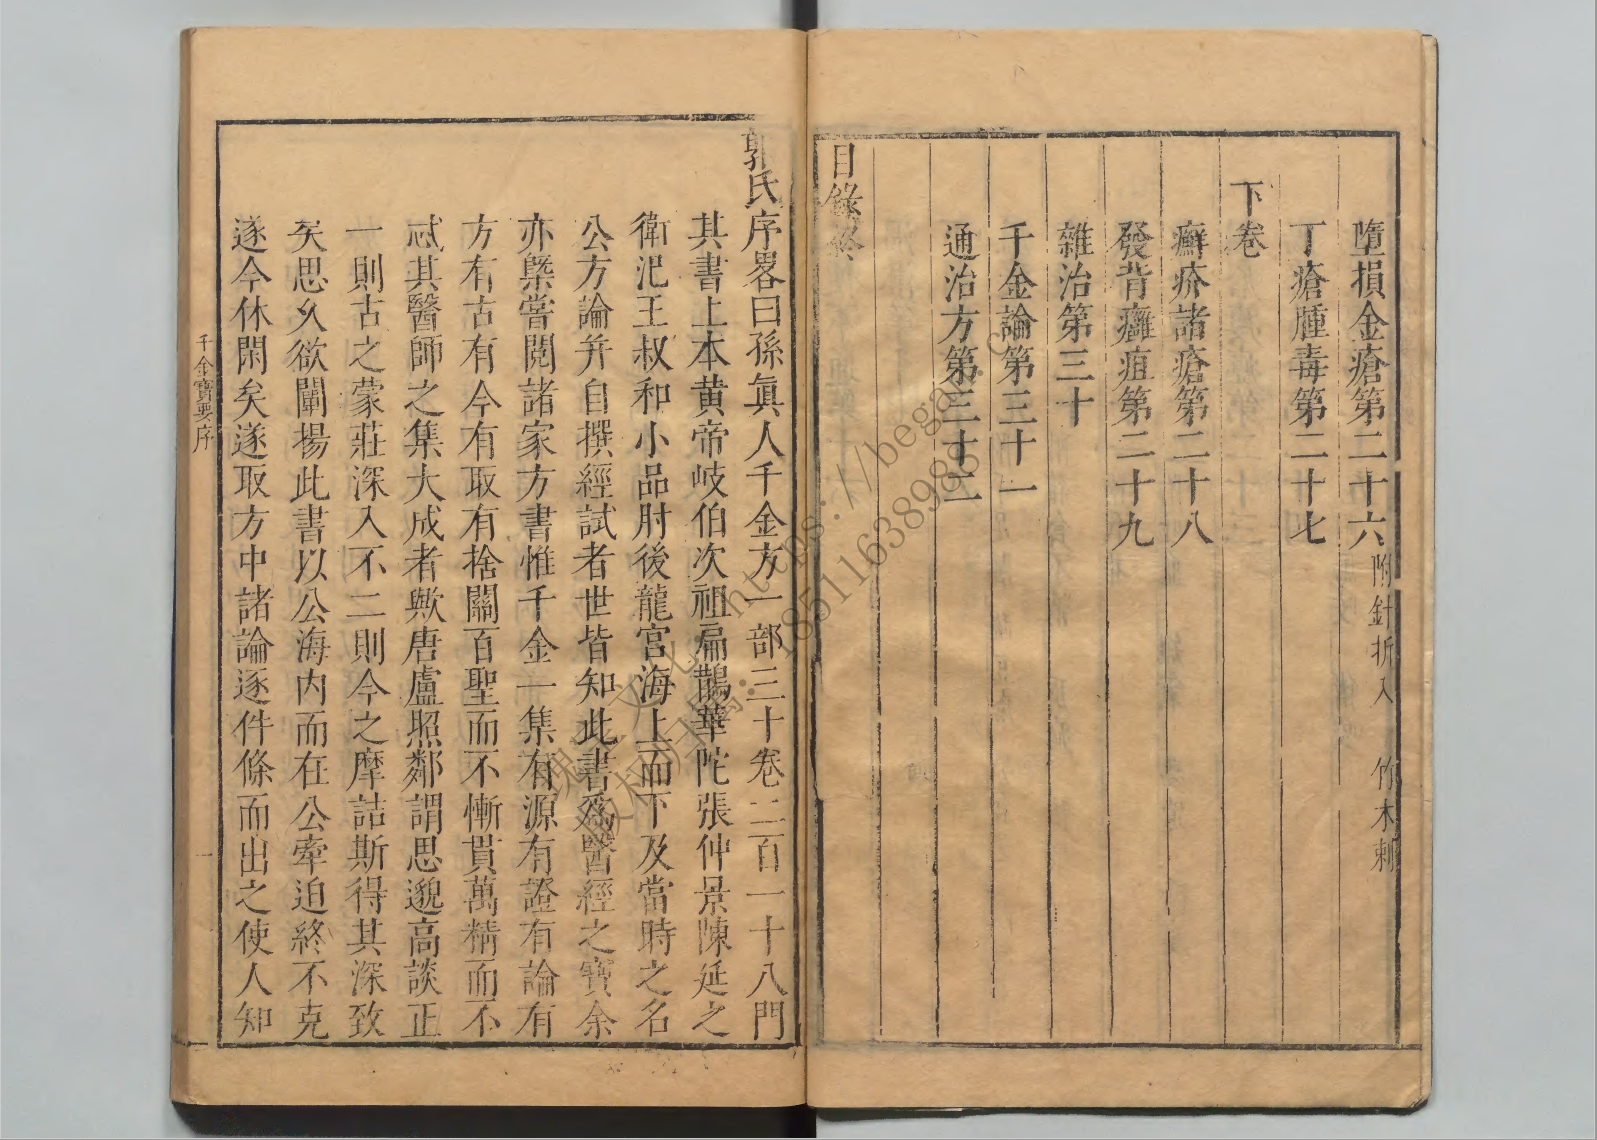 墮損金瘡第二十六 附針折入 竹木刺
丁瘡腫毒第二十七
下卷
癬疥諸瘡第二十八
發背癰疽第二十九
雜治第三十
千金論第三十一
通治方第三十二
目錄終
郭氏序畧曰孫眞人千金方一部三十卷二百一十八門
其書上本黄帝岐伯次祖扁鵲華陀張仲景陳延之
衛汜王叔和小品肘後龍宫海上而下及當時之名
公方論并自撰經試者世皆知此書爲醫經之寳余
亦槩嘗閲諸家方書惟千金一集有源有證有論有
方有古有今有取有捨關百聖而不慚貫萬精而不
忒其醫師之集大成者歟唐盧照鄰謂思邈高談正
一則古之蒙莊深入不二則今之摩詰斯得其深致
矣思乆欲闡揚此書以公海内而在公牽迫終不克
遂今休閑矣遂取方中諸論逐件條而出之使人知
千金寳要序
一
https://began.c
18511638988